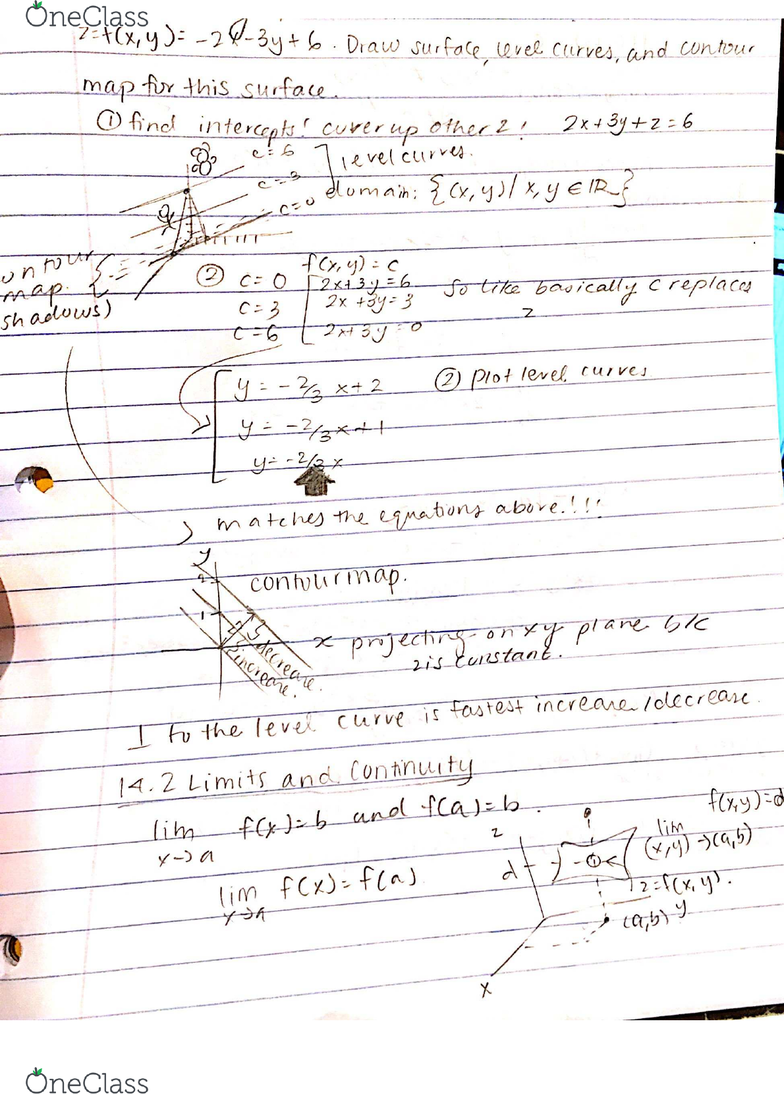 OneClass
z=f(x,y)= -2x-3y+6. Draw surface, level curves, and contour
map for this surface.
① find intercepts! cover up other 2! 2x+3y+z=6
c=6 level curves.
c=3 domain: {(x,y)| x,y ∈ IR}
c=0
contour
map.
(shadows)
f(x,y)=c
② c=0 2x+3y=6 So like basically c replaces
c=3 2x+3y=3 z
c=6 2x+3y=0
y= -2/3 x+2 ② Plot level curves
y= -2/3x+1
y= -2/3x
matches the equations above.!!!
y
2 contour map.
1
x projecting on xy plane b/c
z is constant.
decrease.
increase.
⊥ to the level curve is fastest increase/decrease.
14.2 Limits and Continuity
lim f(x)=b and f(a)=b.
x→a
lim f(x)=f(a)
x→a
f(x,y)=d
lim
(x,y)→(a,b)
z
d
z=f(x,y).
(a,b) y
x
OneClass